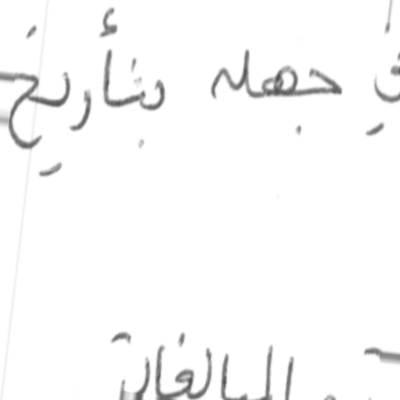 جهله بتأريخ
المبالغات